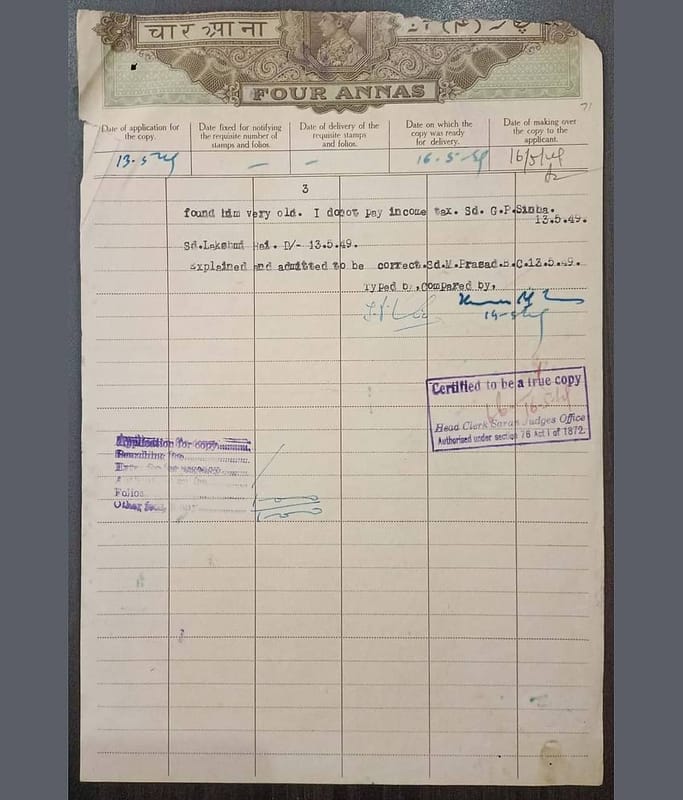 चार आना
FOUR ANNAS
71
Date of application for
the copy.
Date fixed for notifying
the requisite number of
stamps and folios.
Date of delivery of the
requisite stamps
and folios.
Date on which the
copy was ready
for delivery.
Date of making over
the copy to the
applicant.
13-5-49
16-5-49
16/5/49
3
found him very old. I donot pay income tax. Sd. G.P.Sinha.
13.5.49.
Sd.Lakshmi Rai. D/- 13.5.49.
explained and admitted to be correct.Sd.M.Prasad.B.C.13.5.49.
Typed by,Compared by,
Certified to be a true copy
16-5-49
Head Clerk Saran Judges Office
Authorised under section 76 Act I of 1872.
Application for copy
Folios
Other fees